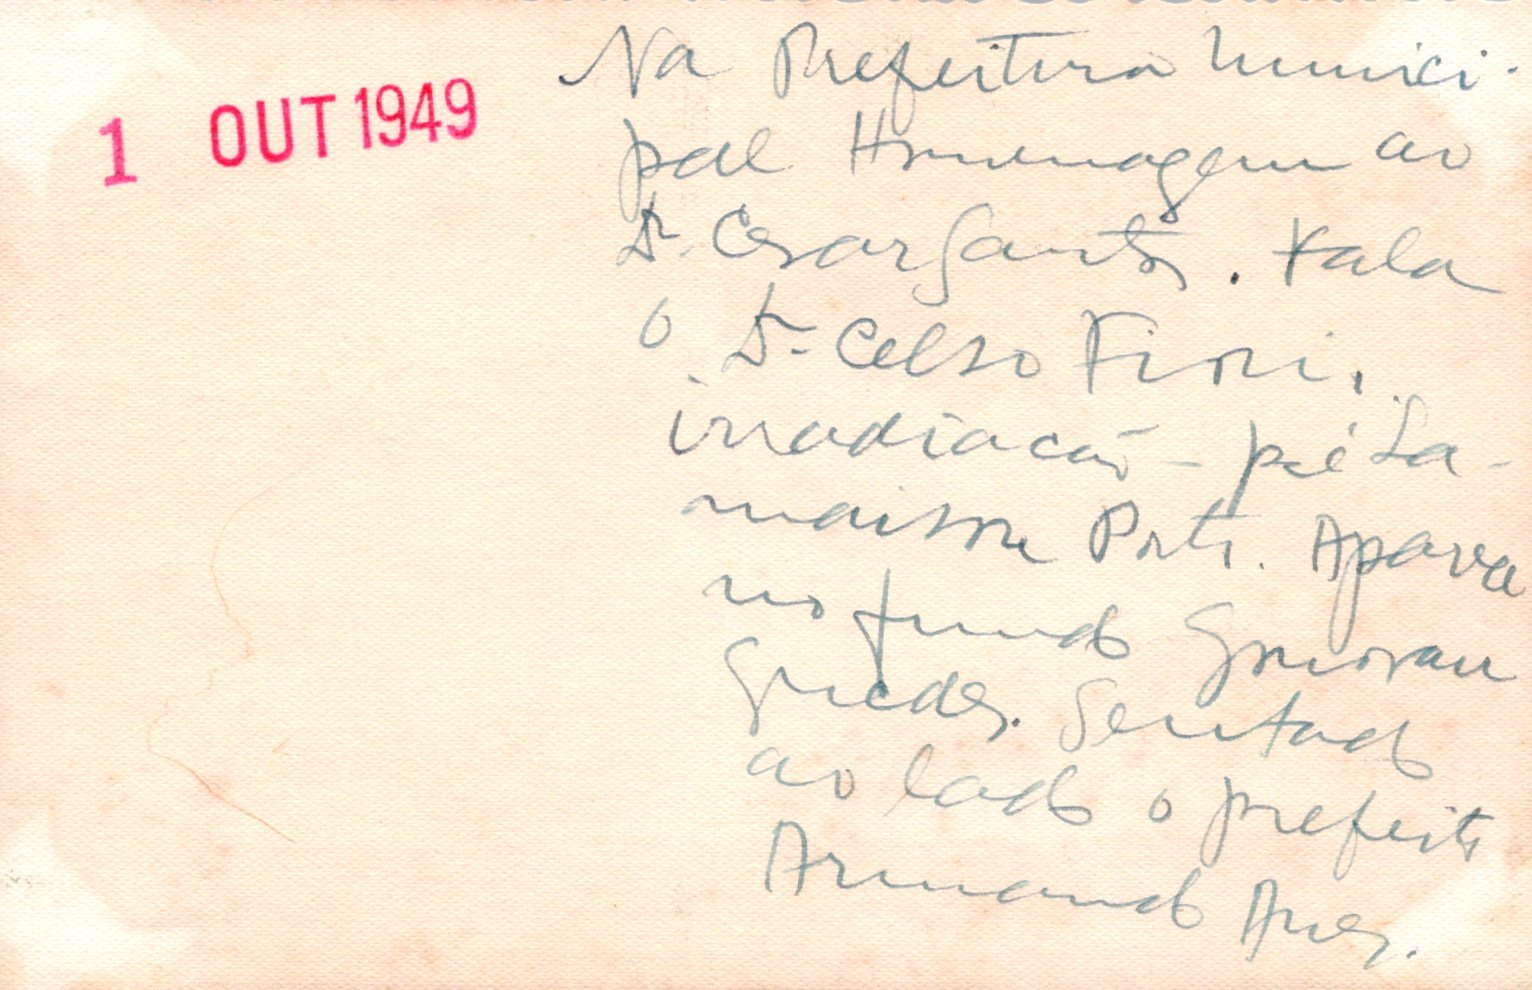 1 OUT 1949
Na Prefeitura Munici-
pal Homenagem ao
Dr. Cesar Santos. Fala
o Dr. Celso Fiori.
irradiacão - pé La-
maison Porto. Aparece
no fundo
Guedes. Sentado
ao lado o prefeito
Armando Anes.